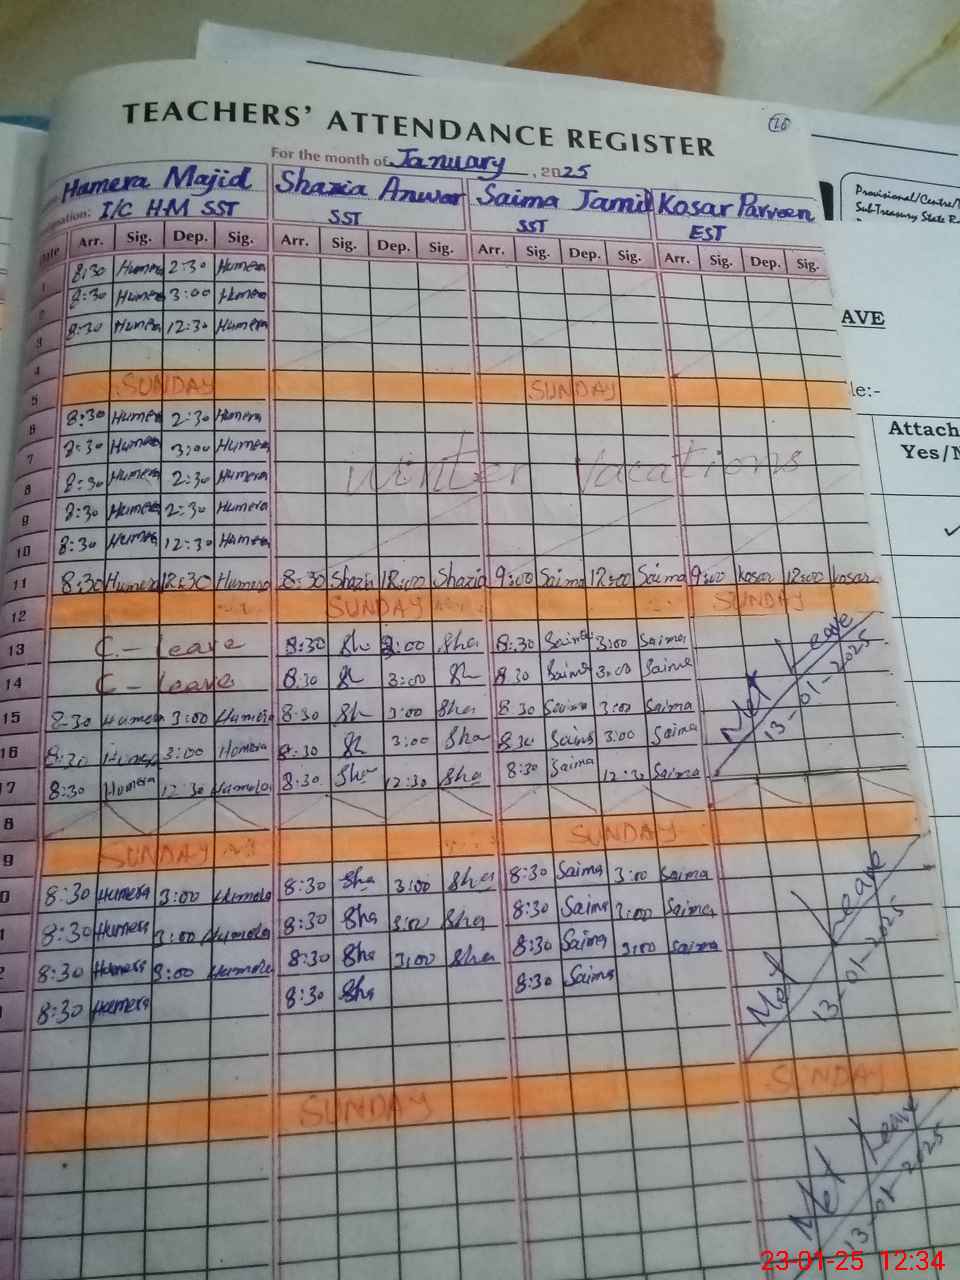 TEACHERS' ATTENDANCE REGISTER
16
For the month of January, 2025
Humera Majid Shazia Anwar Saima Jamil Kosar Parveen
I/C H.M SST SST SST EST
Arr. Sig. Dep. Sig. Arr. Sig. Dep. Sig. Arr. Sig. Dep. Sig. Arr. Sig. Dep. Sig.
1 8:30 Humera 2:30 Humera
2 8:30 Humera 3:00 Humera
3 8:30 Humera 12:30 Humera
4
5 SUNDAY SUNDAY
6 8:30 Humera 2:30 Humera
7 8:30 Humera 3:00 Humera
Winter Vacations
8 8:30 Humera 2:30 Humera
9 8:30 Humera 2:30 Humera
10 8:30 Humera 12:30 Humera
11 8:30 Humera 12:30 Humera 8:30 Shazia 12:00 Shazia 9:00 Saima 12:00 Saima 9:00 Kosar 12:00 Kosar
12 SUNDAY SUNDAY
13 C.- leave 8:30 Sha 3:00 Sha 8:30 Saima 3:00 Saima
14 C - leave 8:30 Sh 3:00 Sh 8:30 Saima 3:00 Saima
15 8:30 Humera 3:00 Humera 8:30 Sh 3:00 Sha 8:30 Saima 3:00 Saima
16 8:30 Humera 3:00 Humera 8:30 Sh 3:00 Sha 8:30 Saima 3:00 Saima
17 8:30 Humera 12:30 Humera 8:30 Sha 12:30 Sha 8:30 Saima 12:30 Saima
Met Leave
13-01-2025
8
9 SUNDAY SUNDAY
0 8:30 Humera 3:00 Humera 8:30 Sha 3:00 Sha 8:30 Saima 3:00 Saima
1 8:30 Humera 3:00 Humera 8:30 Sha 3:00 Sha 8:30 Saima 3:00 Saima
2 8:30 Humera 3:00 Humera 8:30 Sha 3:00 Sha 8:30 Saima 3:00 Saima
8:30 Humera 8:30 Sha 8:30 Saima
Met Leave
13-01-2025
SUNDAY SUNDAY
Met Leave
13-01-2025
Provisional/Centre/
Sub-Treasury State
AVE
le:-
Attach
Yes/N
23-01-25 12:34